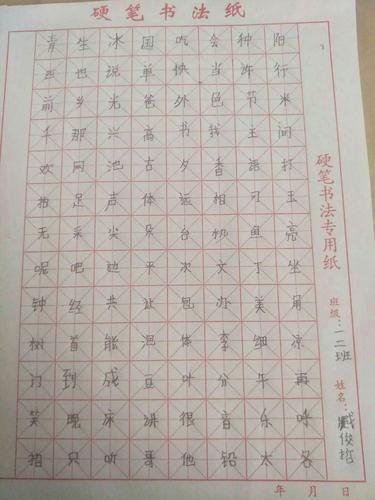 硬笔书法纸
青生冰国吃会种阳
西也说单快当许行
前乡光爸外色节米
千那兴高书我主问
欢网池古夕香语打
拍足声体运相可玉
无采尖朵台机鱼亮
呢吧边平次文丁坐
钟经共让包办美角
树首能泡体李细凉
门到成豆叶分午再
笑晚床讲很音乐呼
拍只听哥他铅太名
硬笔书法专用纸
班级：一二班
姓名：臧俊哲
年月日